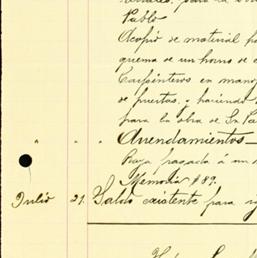 para la
Pablo
Acopió de material pa
quema de un horno de c
Carpinteros en mano
de puertas, y haciendo
para la obra de Sn Pa
" " Arrendamientos—
Paja pasada á un
Memoria #89.
Julio 21. Saldo existente para